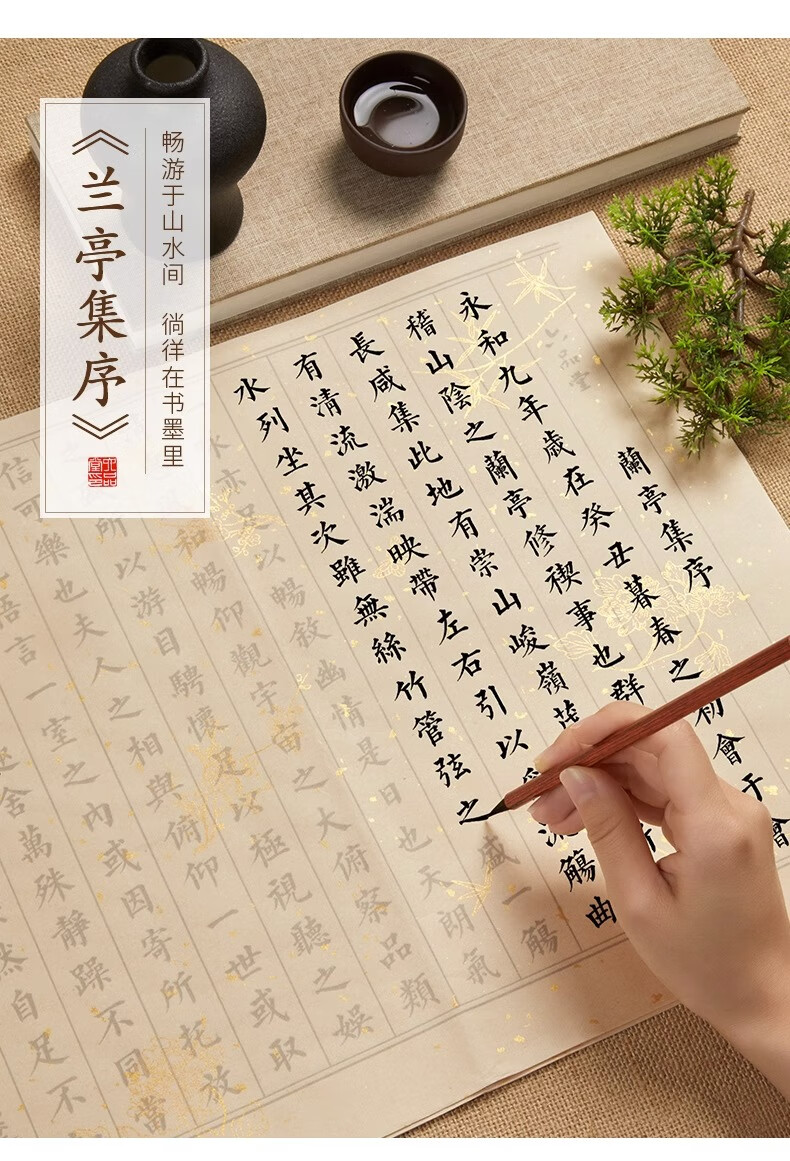 《兰亭集序》
畅游于山水间 徜徉在书墨里
六品堂印
六品堂
蘭亭集序
永和九年歲在癸丑暮春之初會于會
稽山陰之蘭亭修禊事也群
長咸集此地有崇山峻嶺茂
有清流激湍映帶左右引以流觴曲
水列坐其次雖無絲竹管弦之盛一觴
亦足以暢敘幽情是日也天朗氣
和暢仰觀宇宙之大俯察品類
所以游目騁懷足以極視聽之娛
信可樂也夫人之相與俯仰一世或取
悟言一室之內或因寄所托放
舍萬殊靜躁不同當
然自足不